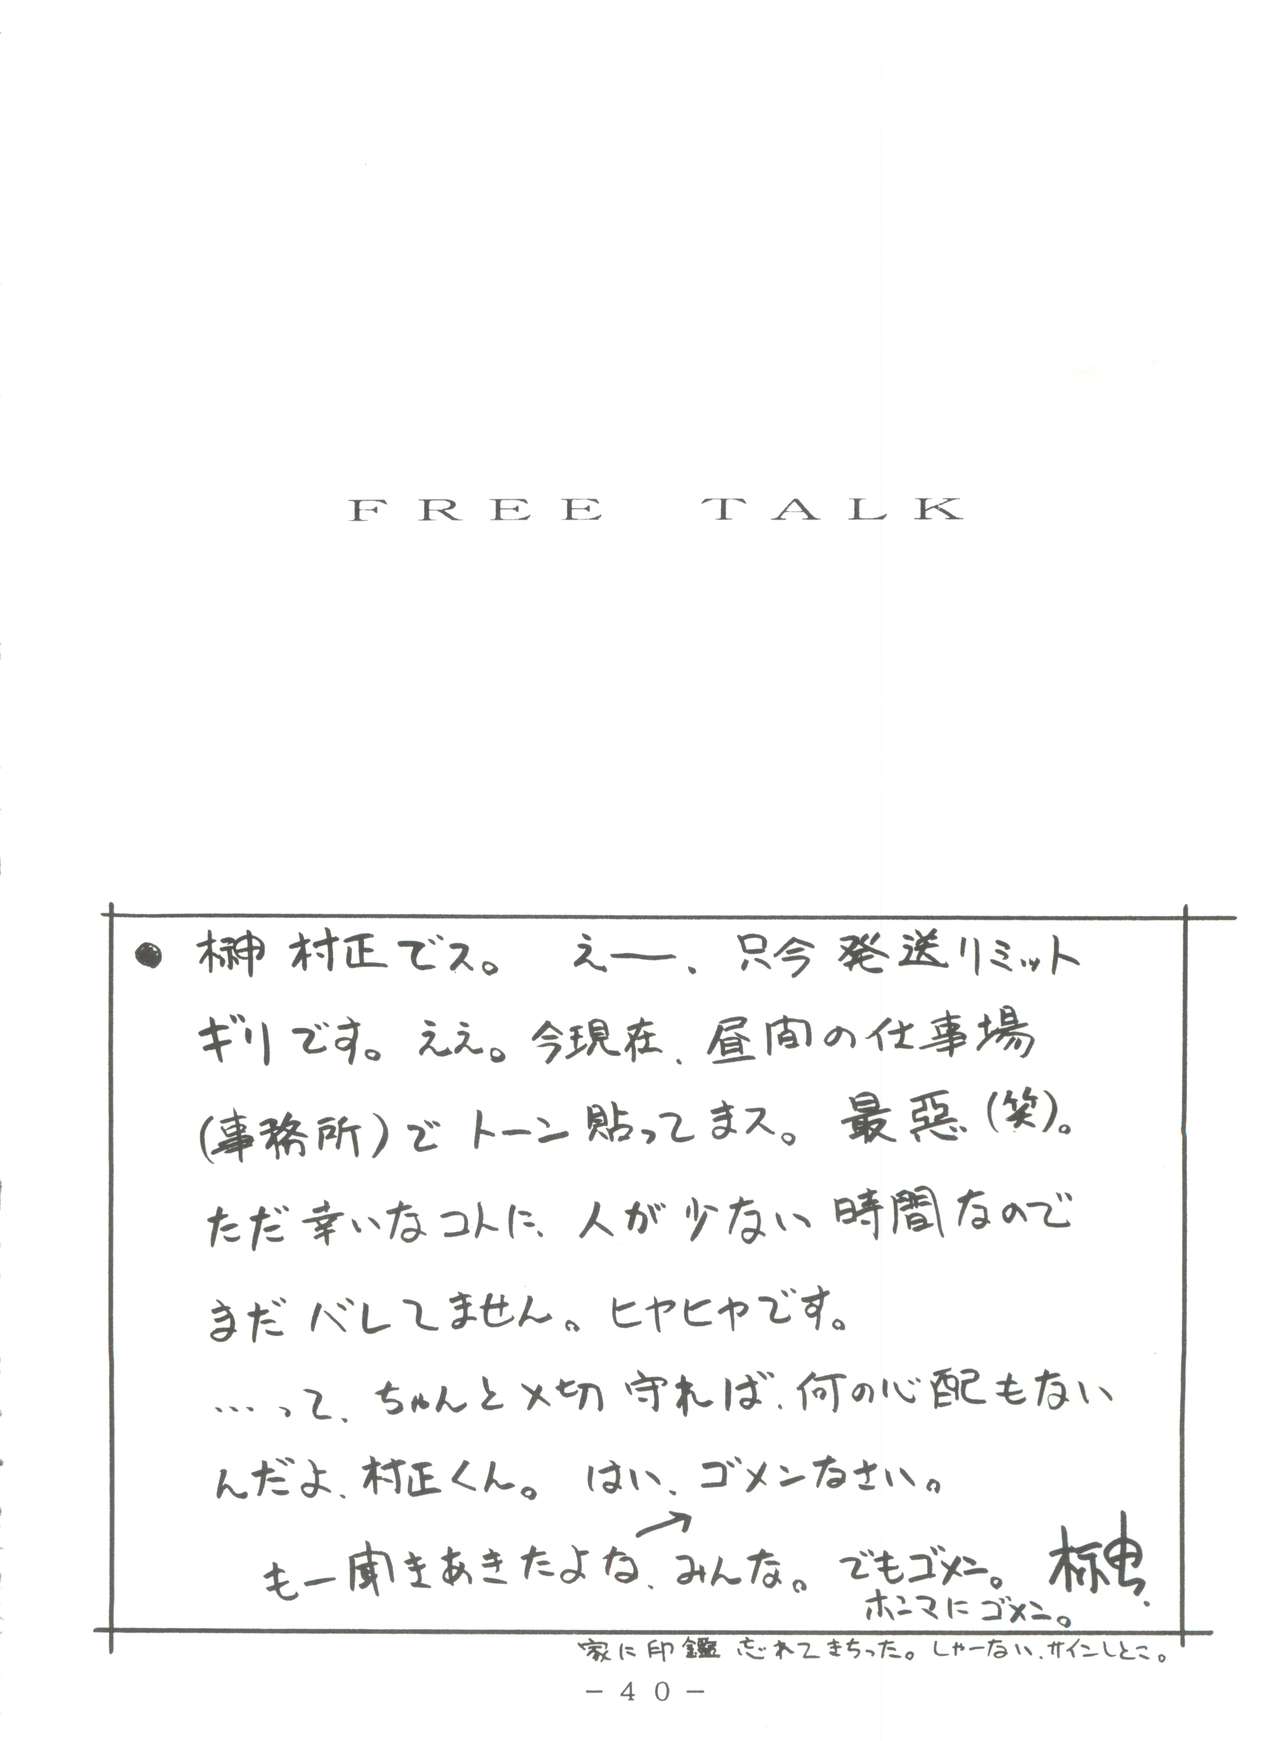 FREE TALK
● 榊 村正でス。 えー、只今 発送リミット
ギリです。ええ。今現在、昼間の仕事場
(事務所)で トーン貼ってまス。 最悪(笑)。
ただ幸いなコトに、人が少ない時間なので
まだバレてません。ヒヤヒヤです。
…って、ちゃんと〆切守れば、何の心配もない
んだよ、村正くん。 はい、ゴメンなさい。
→
もー聞きあきたよな、みんな。でもゴメン。 榊
ホンマにゴメン。
家に印鑑忘れてきちった。しゃーない、サインしとこ。
－４０－